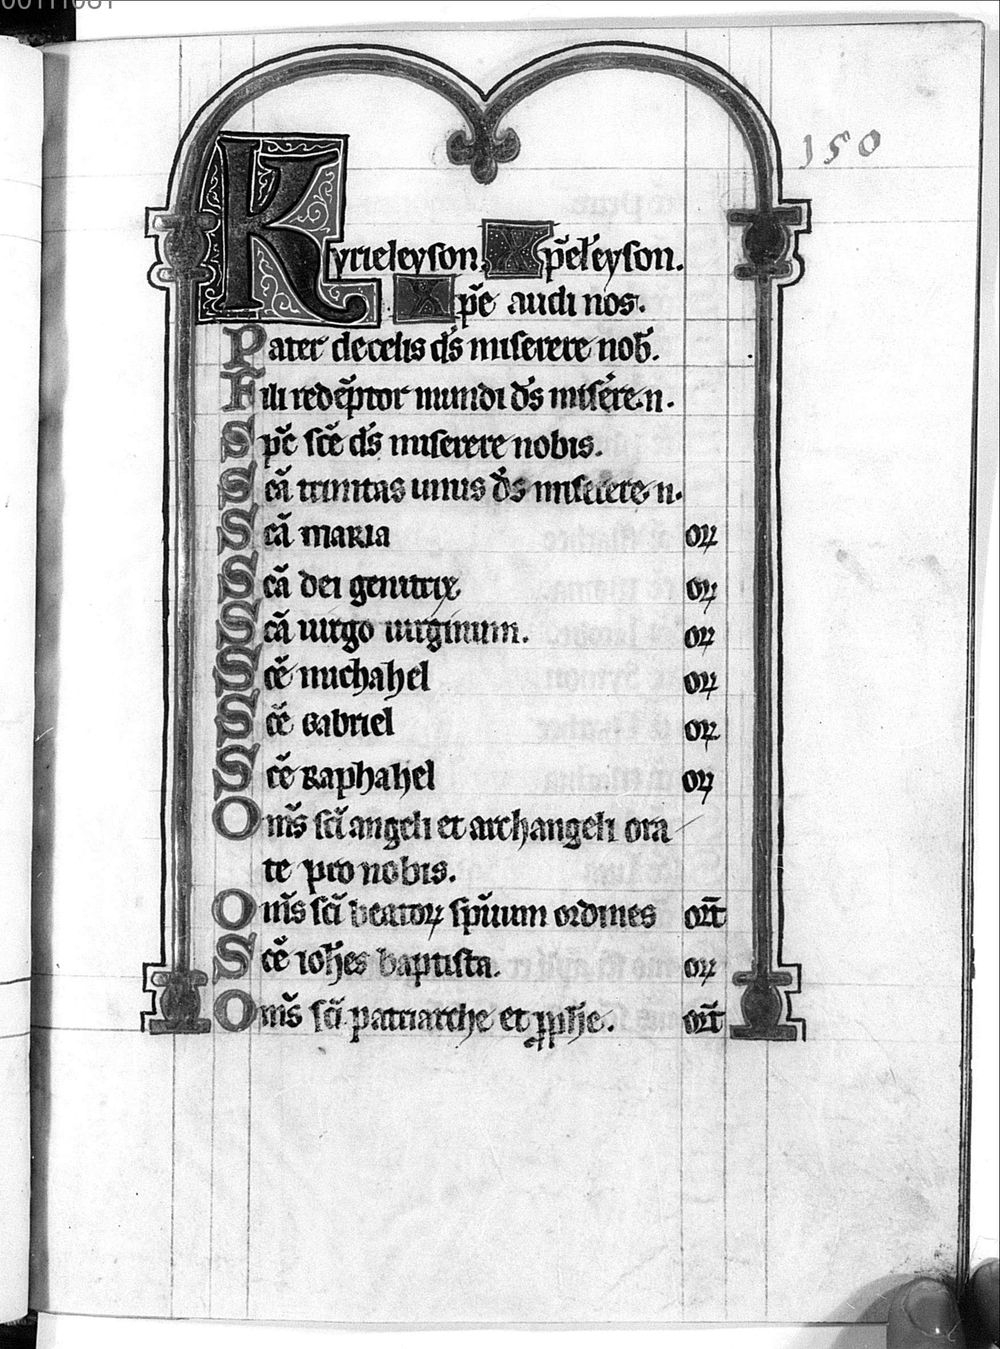 150
Kyrieleyson. Xp̄el̄eyson.
Xp̄e audi nos.
Pater de celis d̄s miserere nob̄.
Fili redēptor mundi d̄s misēre. n.
Sp̄c sc̄e d̄s miserere nobis.
Scā trinitas unus d̄s miserere n.
Scā maria oꝝ
Scā dei genitrix oꝝ
Scā uirgo uirginum. oꝝ
Sc̄e michahel oꝝ
Sc̄e Gabriel oꝝ
Sc̄e Raphahel oꝝ
Om̄s sc̄i angeli et archangeli ora
te pro nobis.
Om̄s sc̄i beatoꝝ sp̄uum ordines or̄t
Sc̄e ioh̄es baptista. oꝝ
Om̄s sc̄i patriarche et ꝓph̄e. or̄t